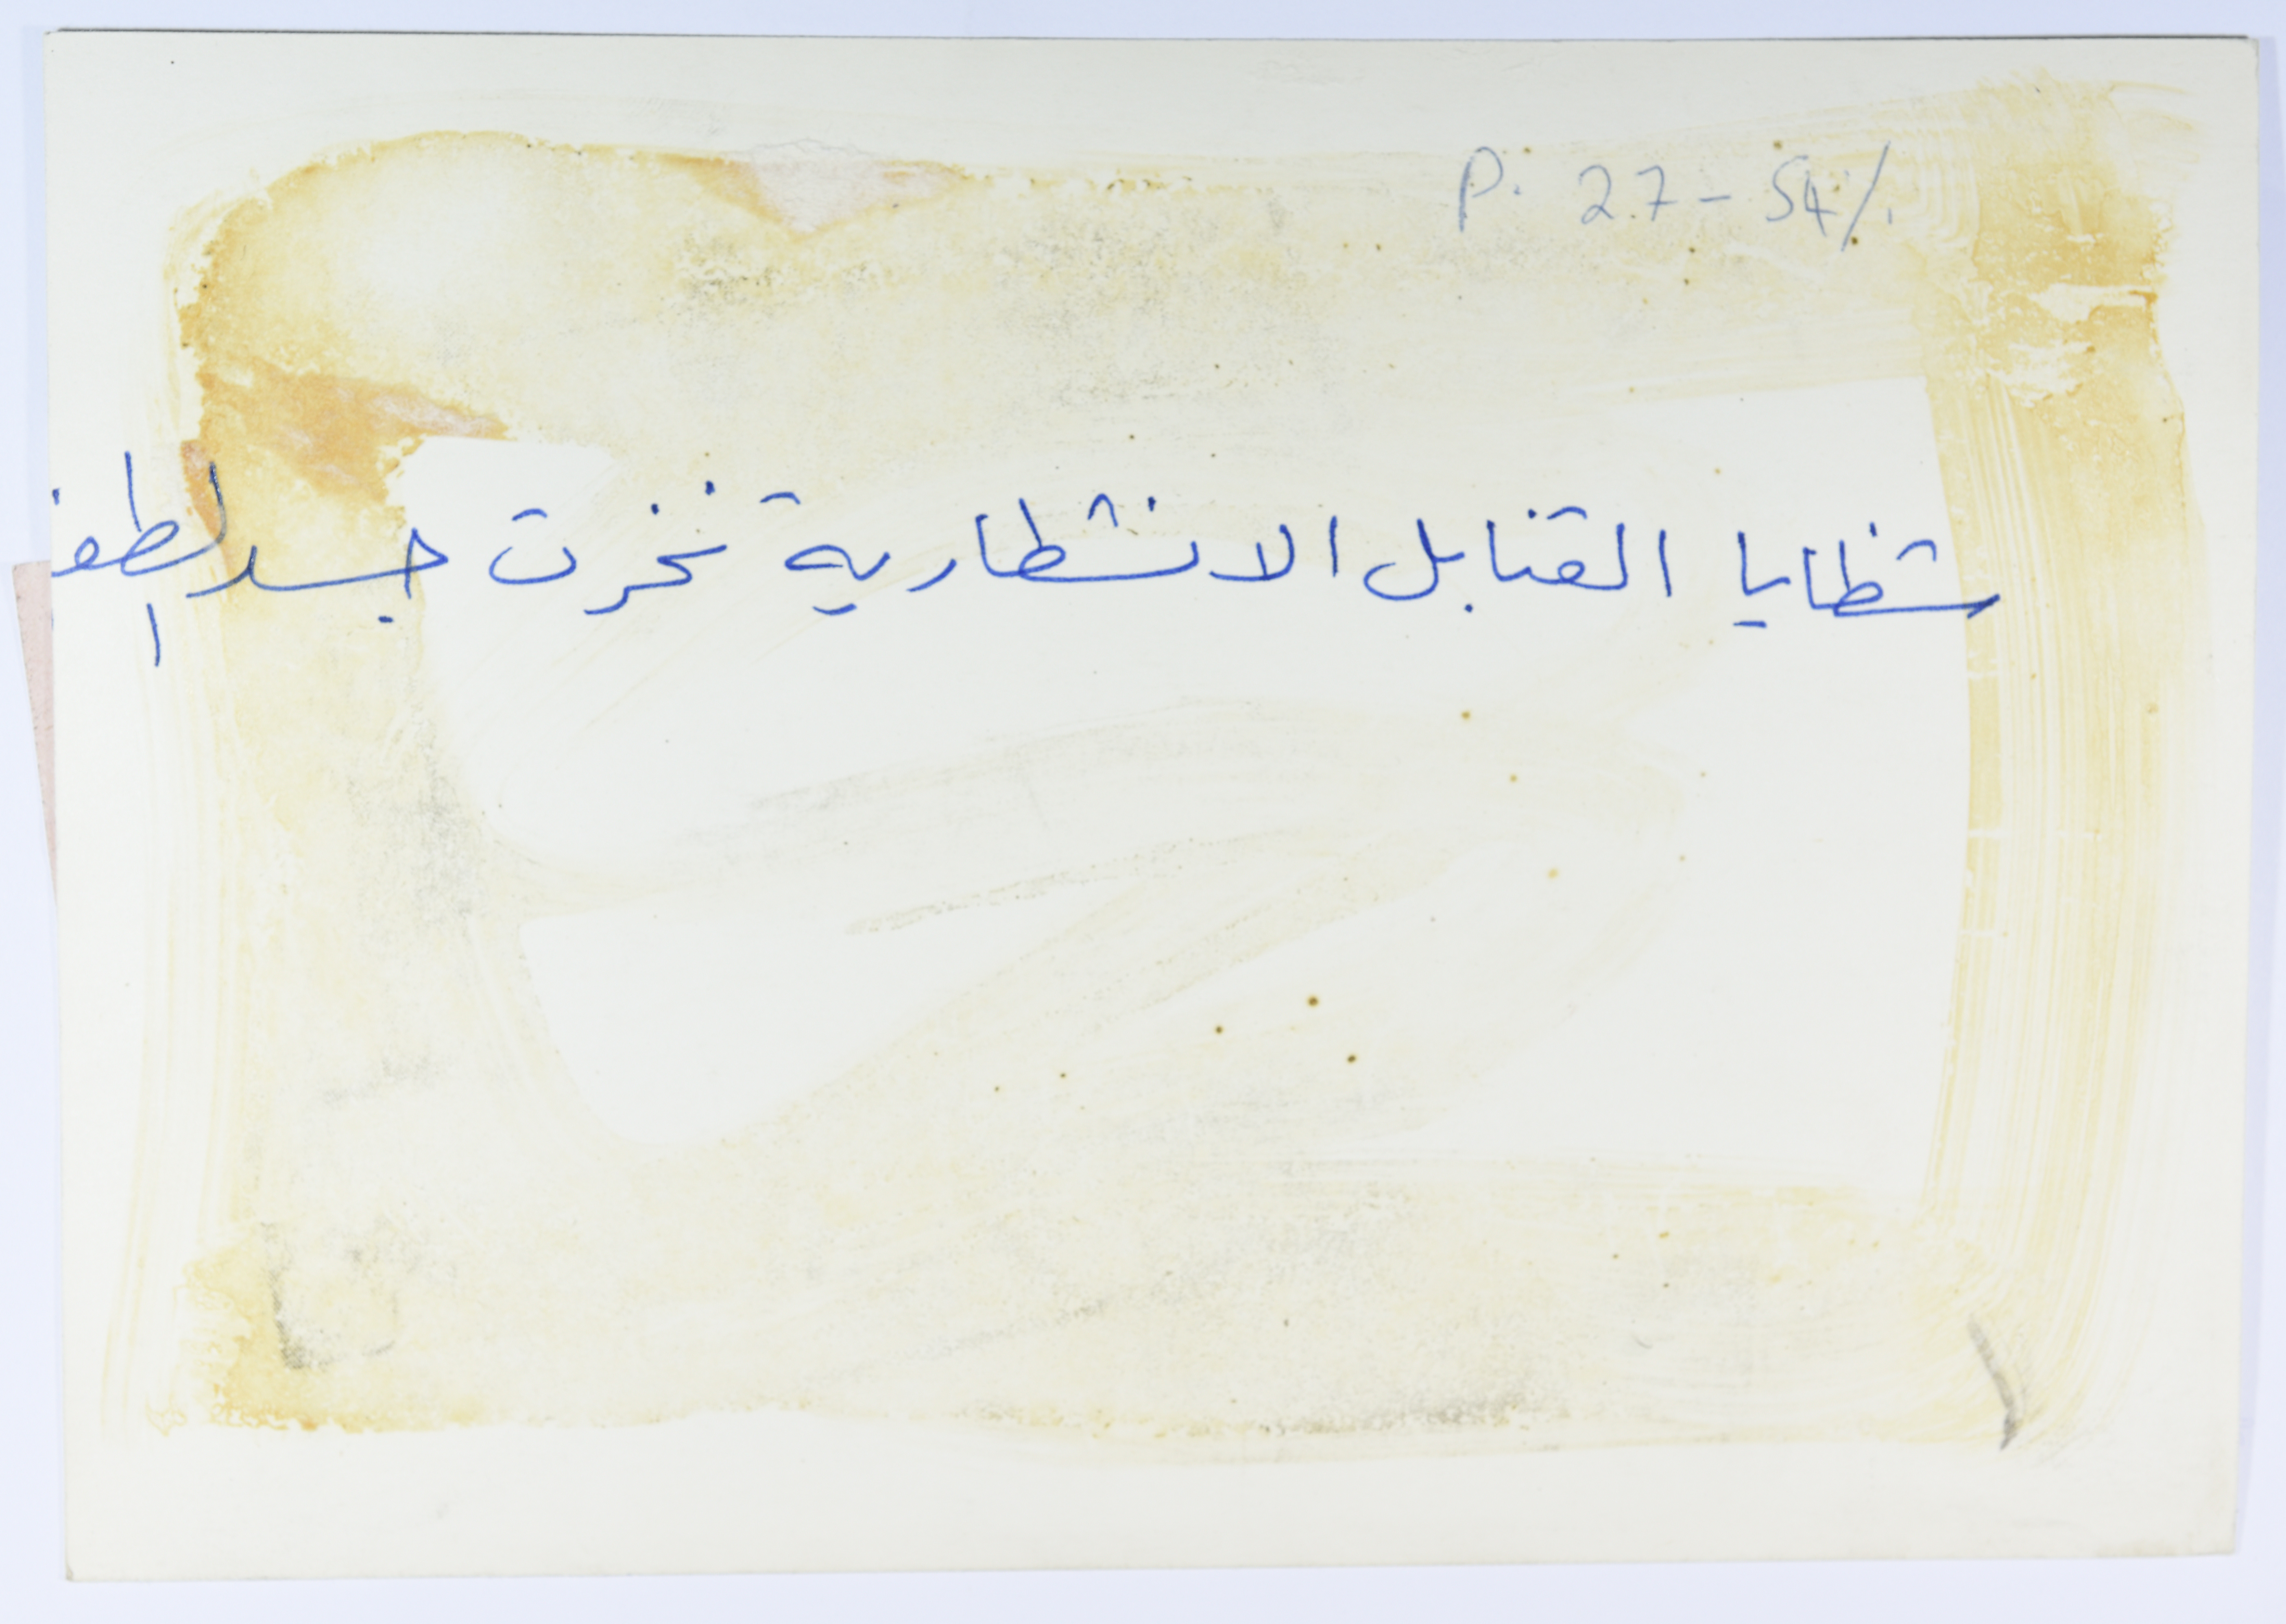 P. 27 - 54%
شظايا القنابل الانشطارية نخرت جسد الطفـ